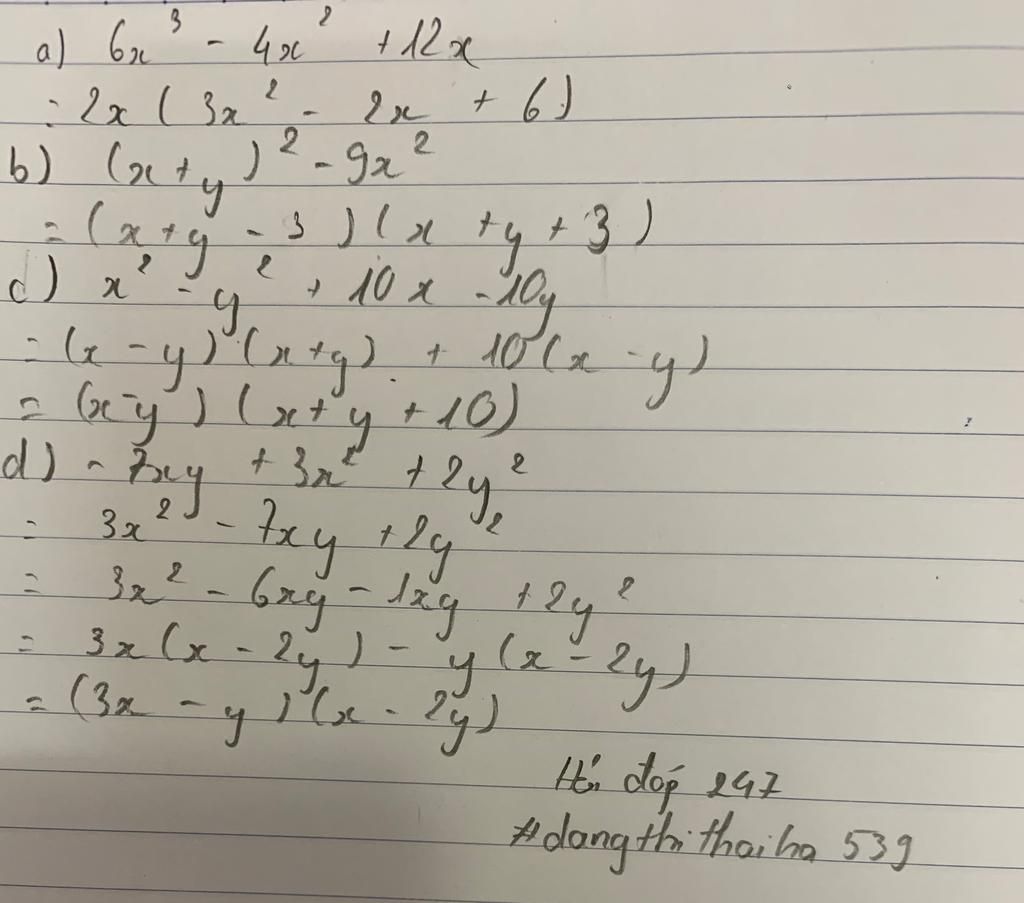 a) 6x³ - 4x² + 12x
= 2x ( 3x² - 2x + 6)
b) (x+y)² - 9x²
= (x+y - 3 ) ( x + y + 3 )
c) x² - y² + 10x - 10y
= (x - y) (x+y) + 10 (x - y)
= (x-y) (x+y + 10)
d) - 7xy + 3x² + 2y²
= 3x² - 7xy + 2y²
= 3x² - 6xy - 1xy + 2y²
= 3x (x - 2y) - y (x - 2y)
= (3x - y) (x - 2y)
đáp 247
#dangthithaiha 539